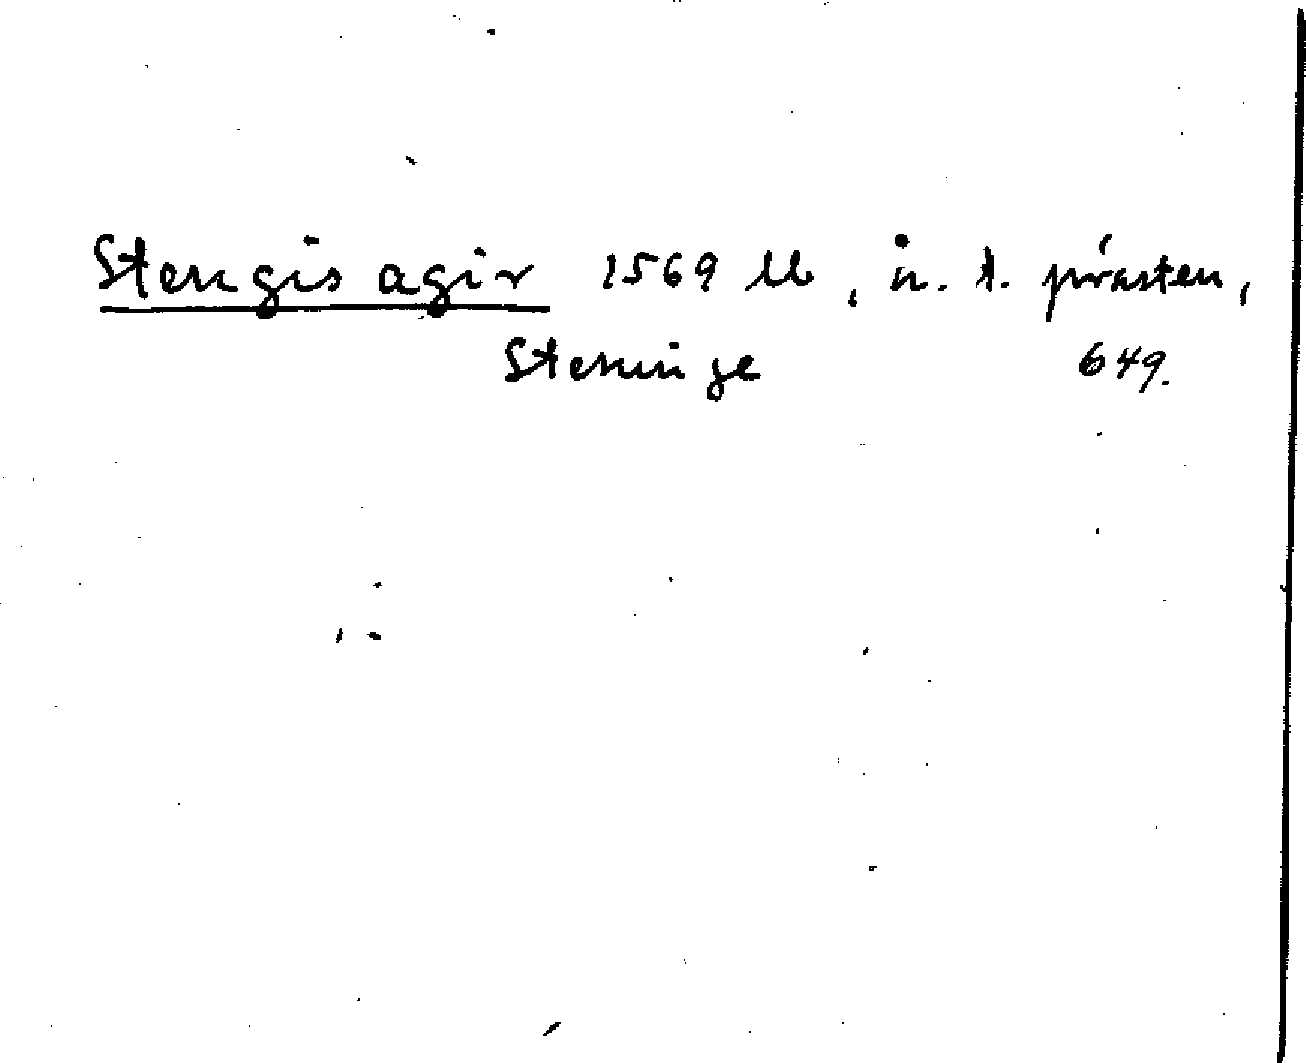 Stengis agir 1569 Ub, å. t. prästen,
Steninge 649.